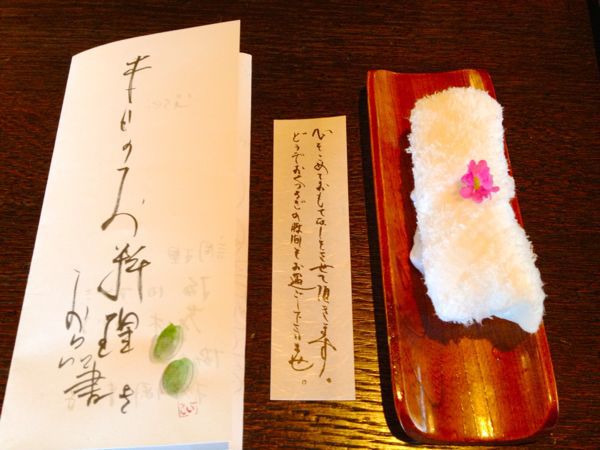 本日のお料理
心をこめておもてなしをさせて頂きます。
どうぞおくつろぎの時間をお過ごし下さいませ。